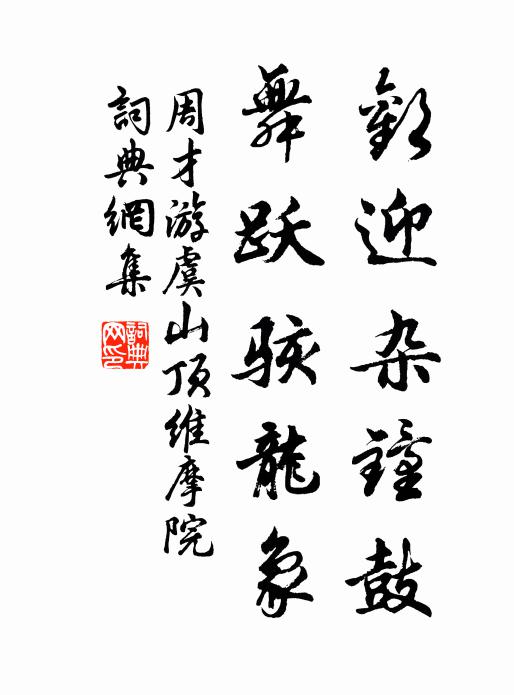 歡迎杂鐘鼓
舞跃駭龍象
周才游虞山頂維摩院
詞典網集
詞典網印